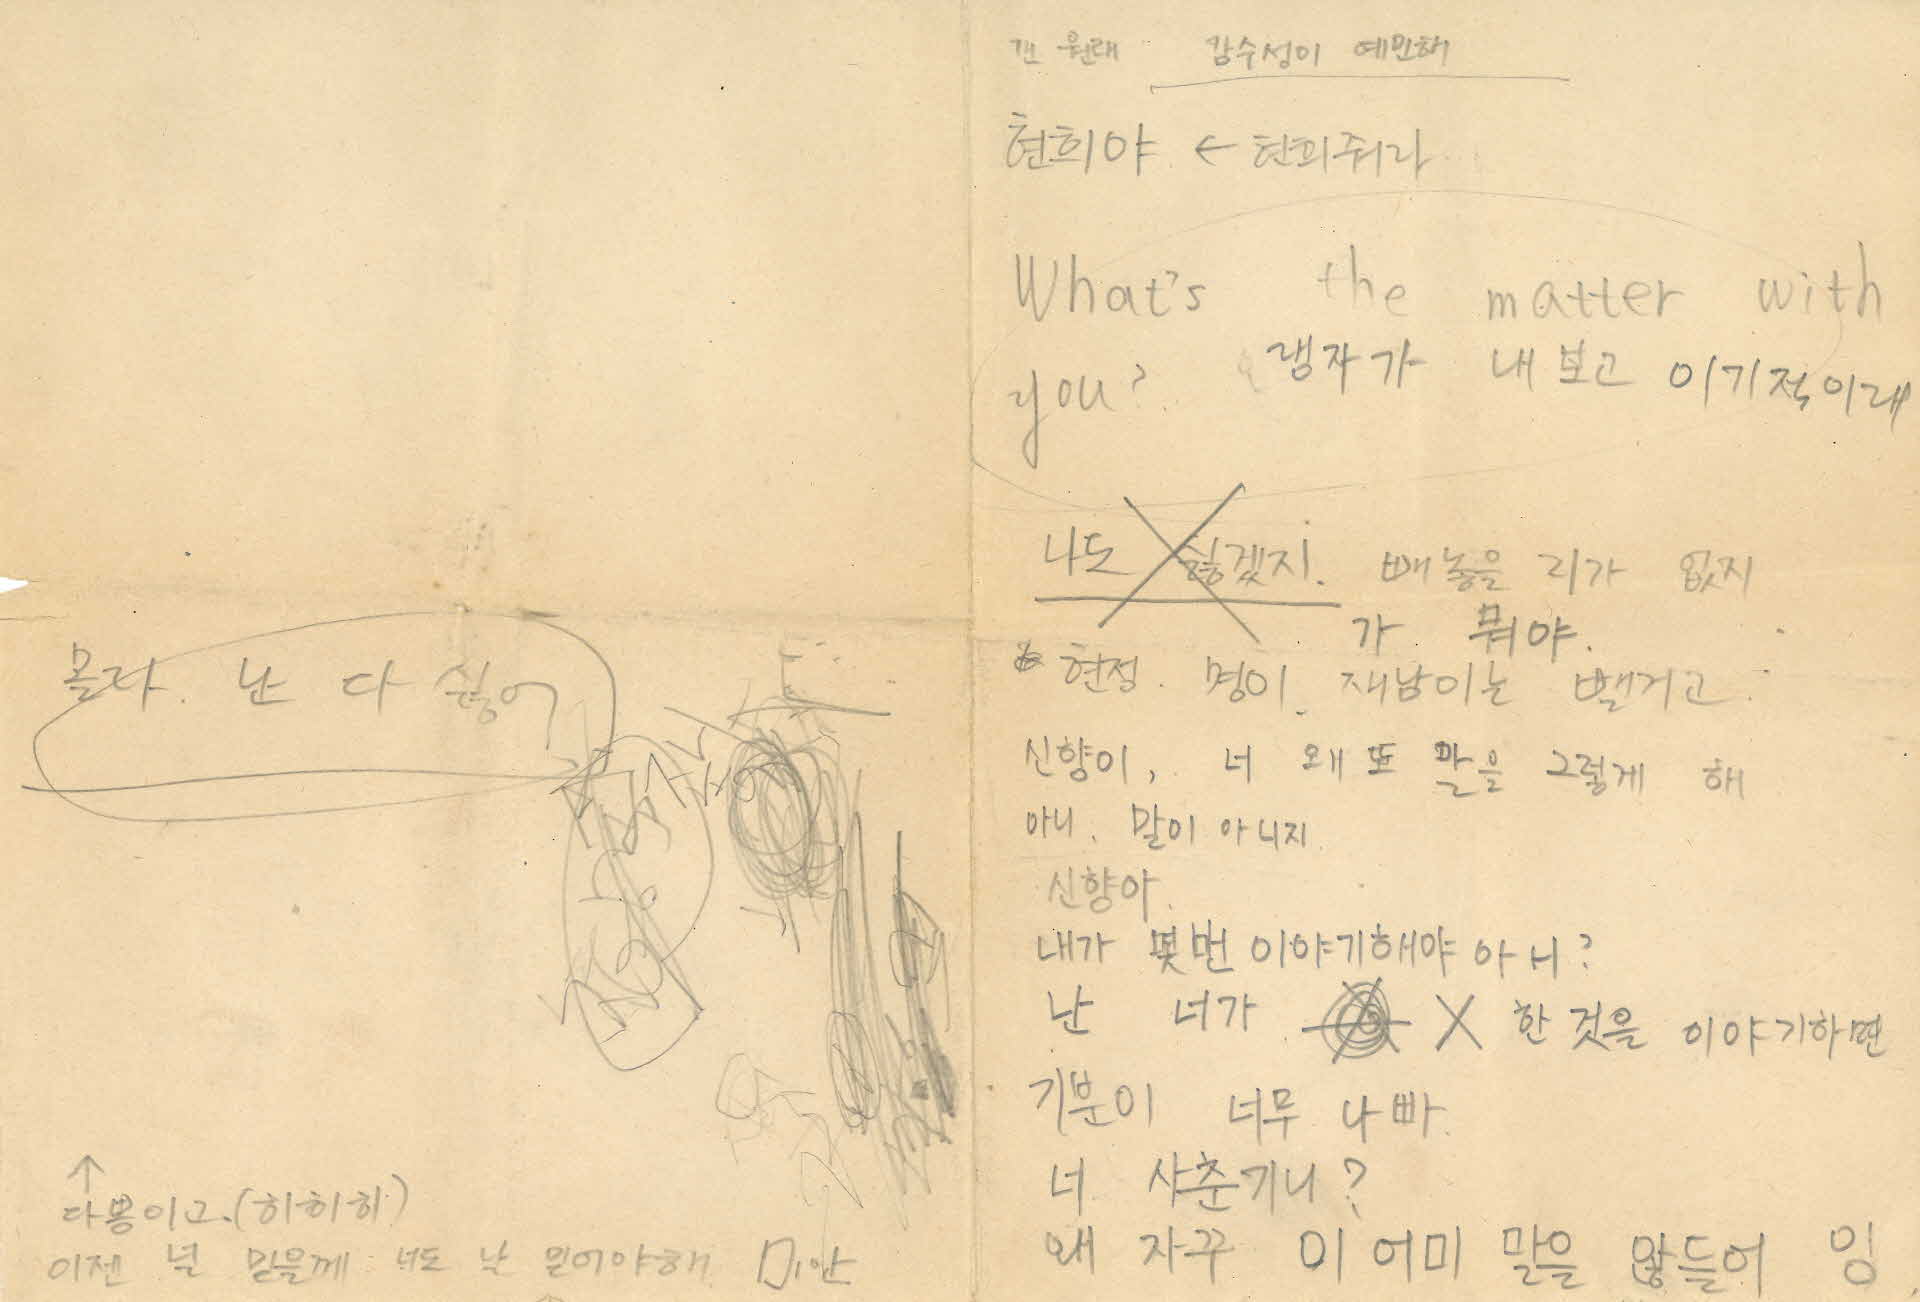 걘 원래 감수성이 예민해
현희야 ← 현희줘라
What's the matter with
you? 랭자가 내보고 이기적이래
나도 싫겠지. 빼놓을 리가 없지
가 뭐야.
현정. 명이. 재남이는 뺄거고
신향이, 너 왜 또 말을 그렇게 해
아니. 말이 아니지
신향아.
내가 몇번 이야기해야 아니?
난 너가 X 한 것을 이야기하면
기분이 너무 나빠.
너 사춘기니?
왜 자꾸 이 어미 말을 않들어 잉
몰라. 난 다 싫어
↑
다뽕이고.(히히히)
이젠 널 믿을께 너도 날 믿어야해. 미안